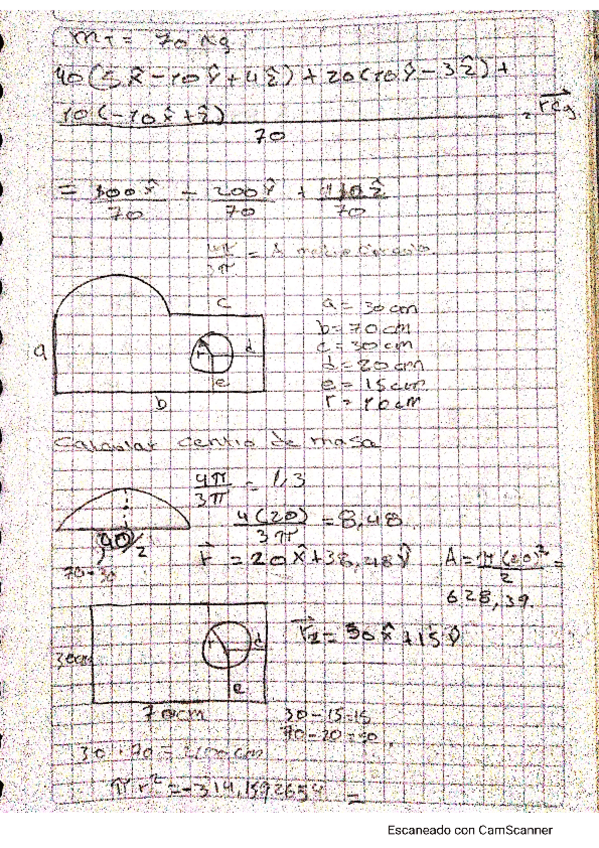 mT = 70 Kg
40(5x̂ - 10ŷ + 4ẑ) + 20(10ŷ - 3ẑ) +
10(-10x̂ + ẑ)
70
= rcg
= 100x̂/70 - 200ŷ/70 + 110ẑ/70
= A medio circulo
c
a = 30 cm
b = 70 cm
c = 30 cm
d = 20 cm
e = 15 cm
r = 10 cm
a
r
d
e
b
Calcular centro de masa
4π/3π = 1,3
4(20)/3π = 8,48
40/2
70-30
r = 20x̂ + 38,48ŷ
A = π(20)²/2 =
628,39.
30cm
r
d
e
r2 = 50x̂ + 15ŷ
70cm
30-15=15
70-20=50
30 · 70 = 2100 cm
πr² = -314,1592654 =
Escaneado con CamScanner